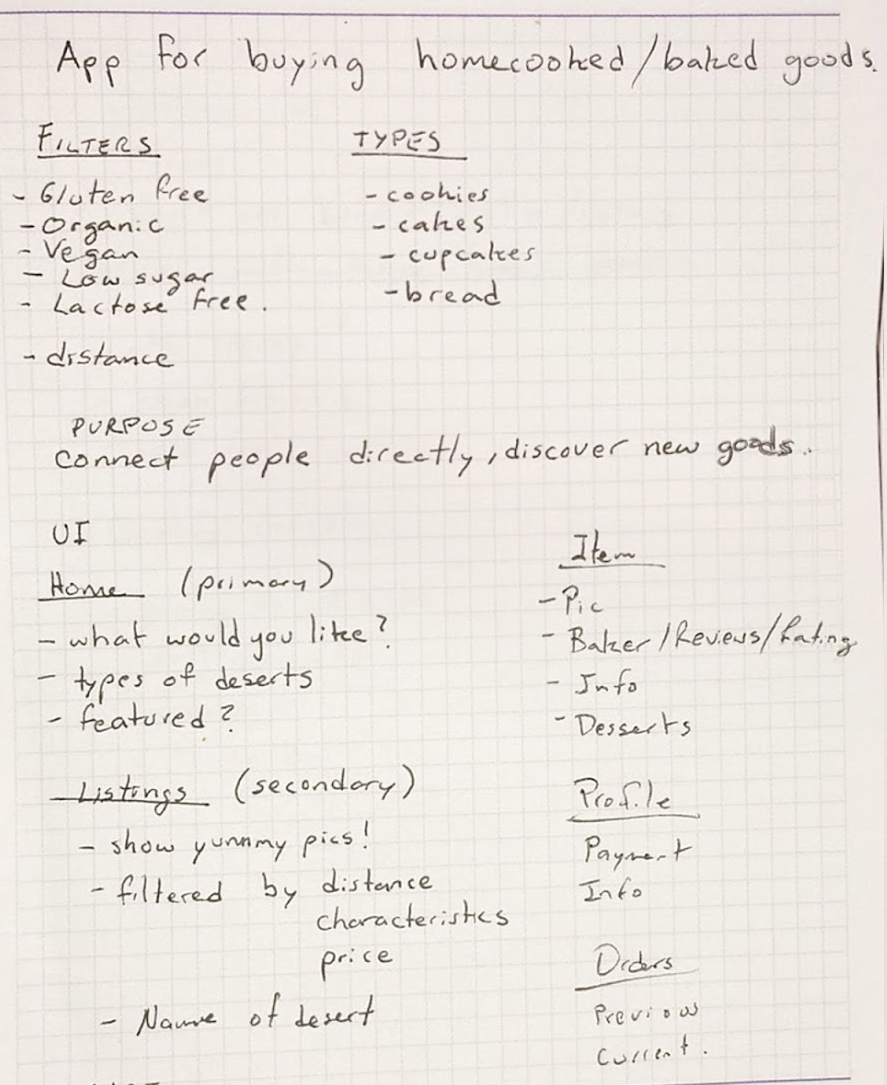 App for buying homecooked/baked goods.
FILTERS
- Gluten free
- Organic
- Vegan
- Low sugar
- Lactose free.
- distance
TYPES
- cookies
- cakes
- cupcakes
- bread
PURPOSE
connect people directly, discover new goods.
UI
Home (primary)
- what would you like?
- types of deserts
- featured?
Listings (secondary)
- show yummy pics!
- filtered by distance
characteristics
price
- Name of desert
Item
- Pic
- Baker/Reviews/Rating
- Info
- Desserts
Profile
Payment
Info
Orders
Previous
Current.